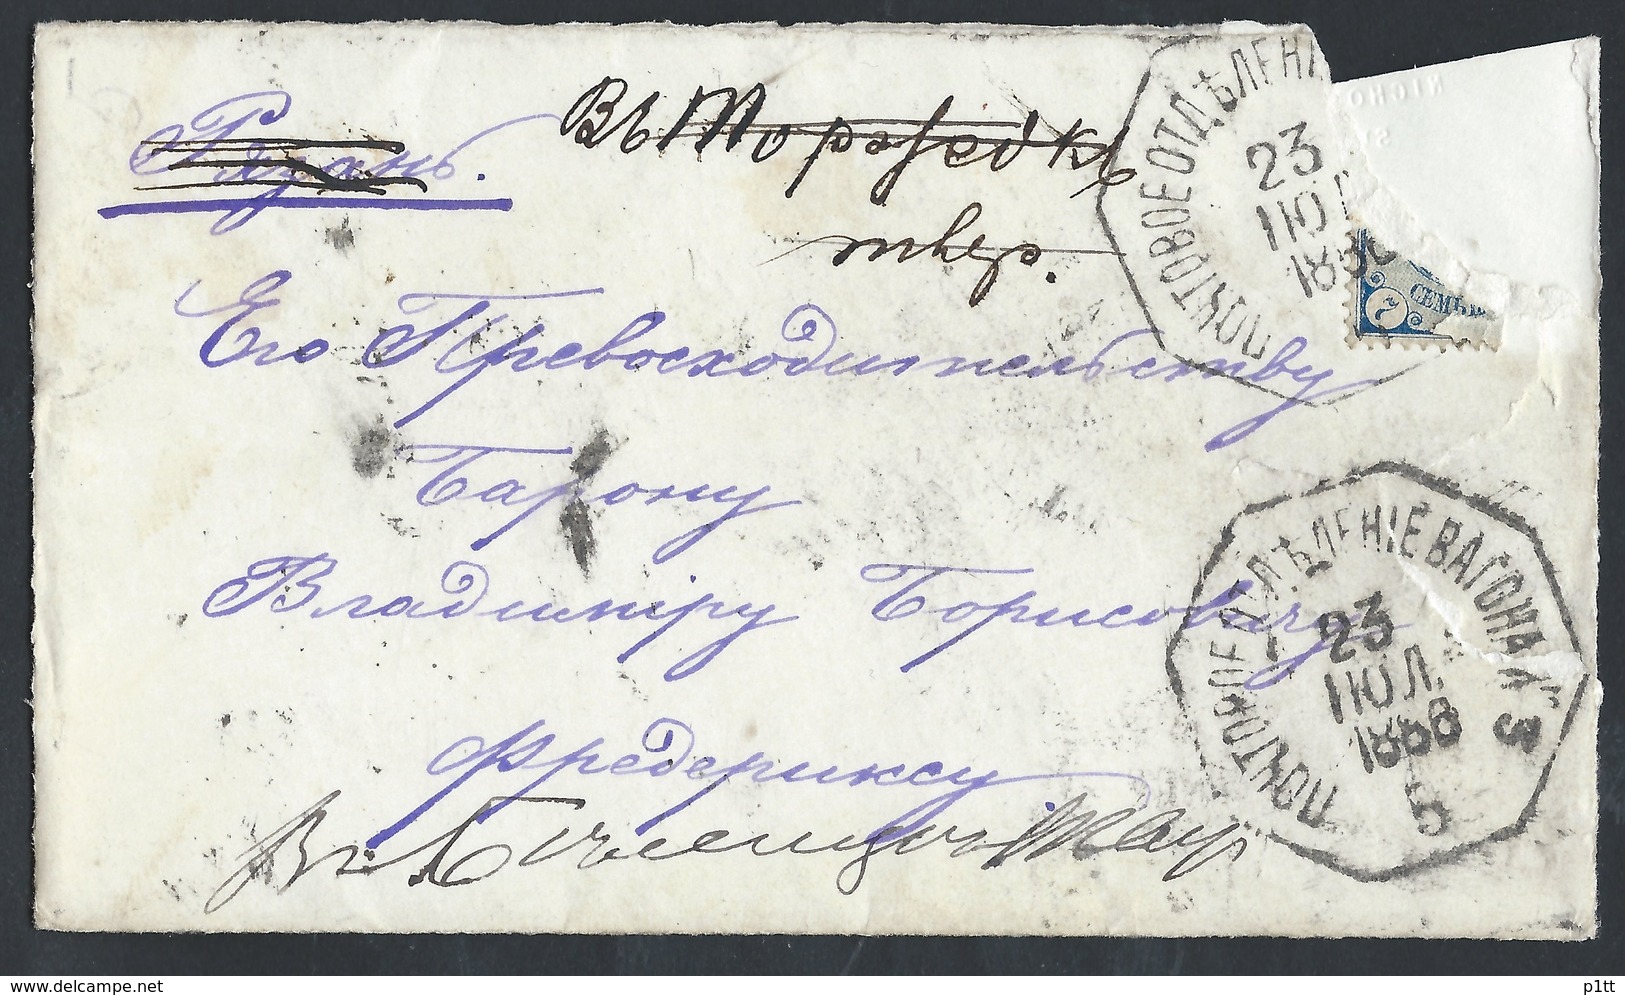 Рязань.
Въ Торжокъ
твер.
Его Превосходительству
Барону
Владиміру Борисовичу
Фредериксу
Въ Твер.
ПОЧТОВОЕ ОТДѢЛЕНІ
23
ІЮЛ
188
7
СЕМЬ
ПОЧТОВОЕ ОТДѢЛЕНІЕ ВАГОНА № 3
23
ІЮЛ.
1888
5
www.delcampe.net
p1tt